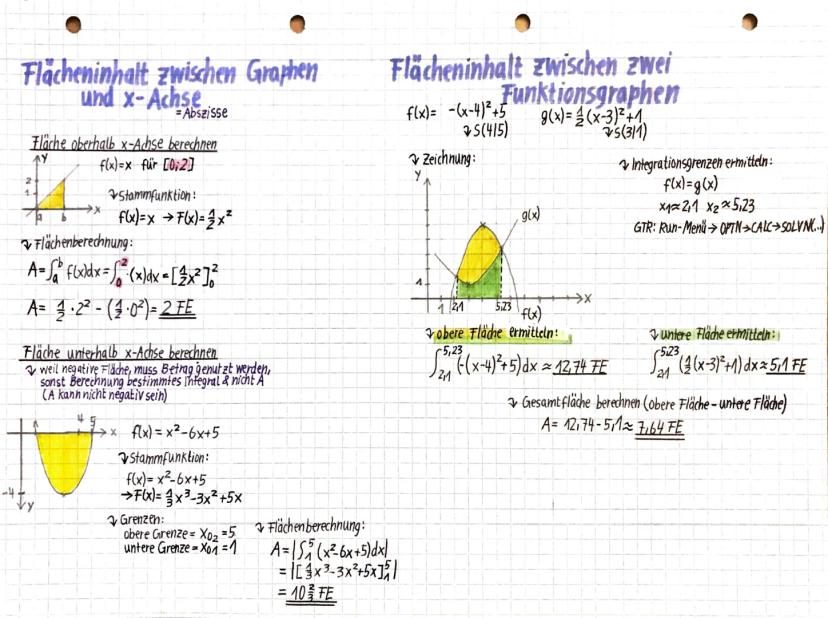 Flächeninhalt zwischen Graphen
und x-Achse
=Abszisse
Fläche oberhalb x-Achse berechnen
f(x)=x für [0;2]
y
2
1
a b x
↴ Stammfunktion:
f(x)=x → F(x)=½x²
↴ Flächenberechnung:
A=∫ₐᵇ f(x)dx=∫₀² (x)dx=[½x²]₀²
A= ½·2² - (½·0²)= 2 FE
Fläche unterhalb x-Achse berechnen
↴ weil negative Fläche, muss Betrag genutzt werden,
sonst Berechnung bestimmtes Integral & nicht A
(A kann nicht negativ sein)
4 5 x
-4
y
f(x)= x²-6x+5
↴ Stammfunktion:
f(x)= x²-6x+5
→F(x)= ⅓x³-3x²+5x
↴ Grenzen:
obere Grenze = x₀₂=5
untere Grenze = x₀₁=1
↴ Flächenberechnung:
A=|∫₁⁵ (x²-6x+5)dx|
= |[⅓x³-3x²+5x]₁⁵|
= 10⅔ FE
Flächeninhalt zwischen zwei
Funktionsgraphen
f(x)= -(x-4)²+5 g(x)=½(x-3)²+1
↴S(4|5) ↴S(3|1)
↴ Zeichnung:
y
g(x)
1 2,1 5,23 x
f(x)
↴ Integrationsgrenzen ermitteln:
f(x)=g(x)
x₁≈2,1 x₂≈5,23
GTR: Run-Menü→OPTN→CALC→SOLVN(...)
↴ obere Fläche ermitteln:
∫₂,₁⁵'²³ (-(x-4)²+5)dx ≈ 12,74 FE
↴ untere Fläche ermitteln:
∫₂,₁⁵'²³ (½(x-3)²+1)dx≈ 5,1 FE
↴ Gesamtfläche berechnen (obere Fläche - untere Fläche)
A= 12,74-5,1≈ 7,64 FE